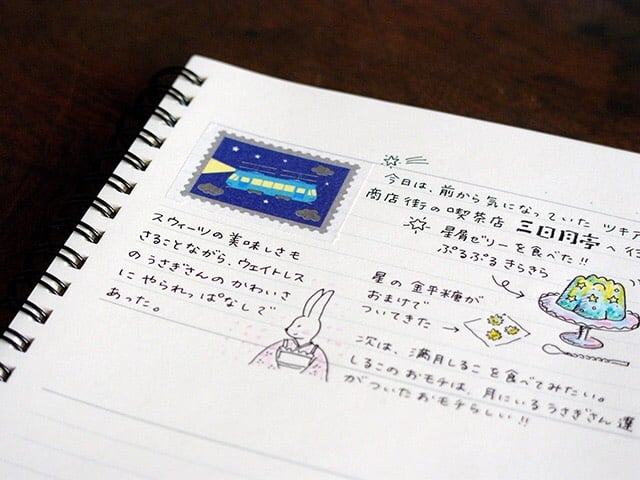 今日は、前から気になっていた ツキア
商店街の喫茶店 三日月亭 へ 行
星屑ゼリーを食べた!!
ぷるぷる きらきら
スウィーツの美味しさも
さることながら、ウェイトレス
のうさぎさんのかわいさ
に やられっぱなしで
あった。
星の 金平糖が
おまけで
ついてきた
次は、満月しるこ を食べてみたい。
しるこのおモチは、月にいるうさぎさん達
がついたおモチらしい!!